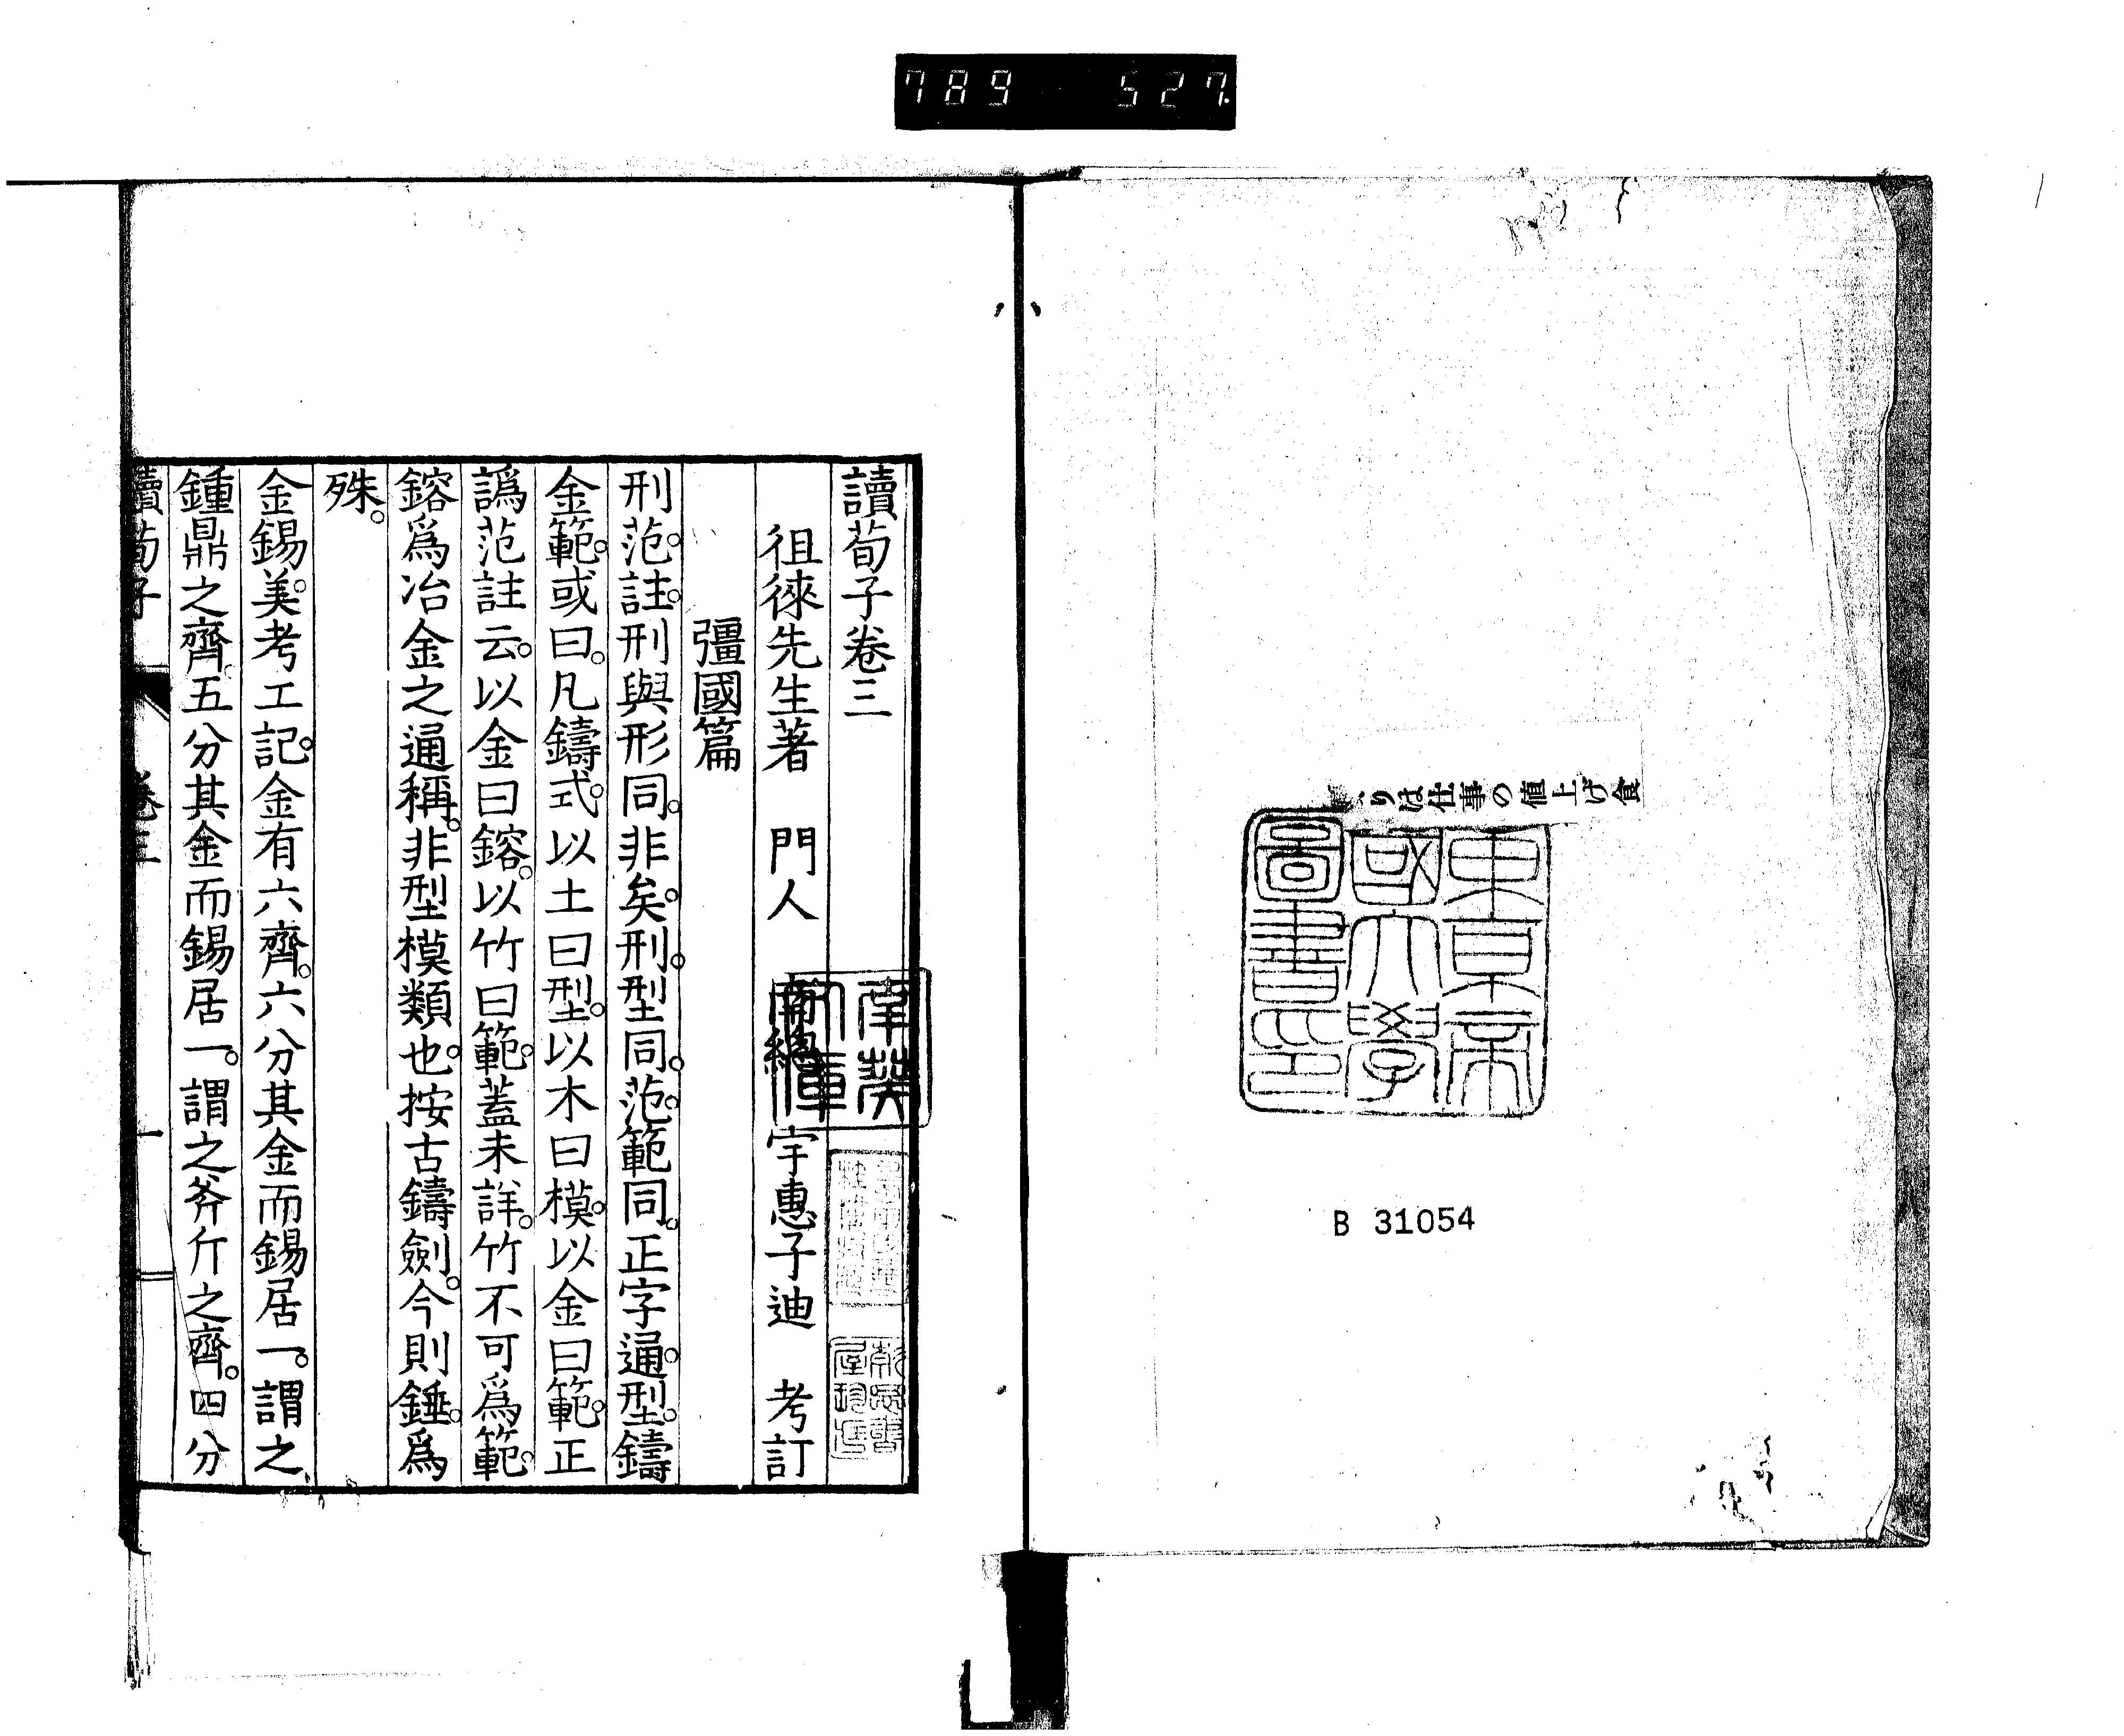 789 527.
りは仕事の値上げ食
東京帝
國大學
圖書印
B 31054
讀荀子卷三
徂徠先生著 門人 南總 宇惠子迪 考訂
彊國篇
刑范。註。刑與形同。非矣。刑。型同。范。範同。正字通。型。鑄
金範。或曰。凡鑄式。以土曰型。以木曰模。以金曰範。正
譌范註云。以金曰鎔。以竹曰範。蓋未詳。竹不可爲範。
鎔爲冶金之通稱。非型模類也。按古鑄劍。今則錘。爲
殊。
金錫。美考工記。金有六齊。六分其金而錫居一。謂之
鍾鼎之齊。五分其金而錫居一。謂之斧斤之齊。四分
讀荀子 卷三 一
南葵
文庫